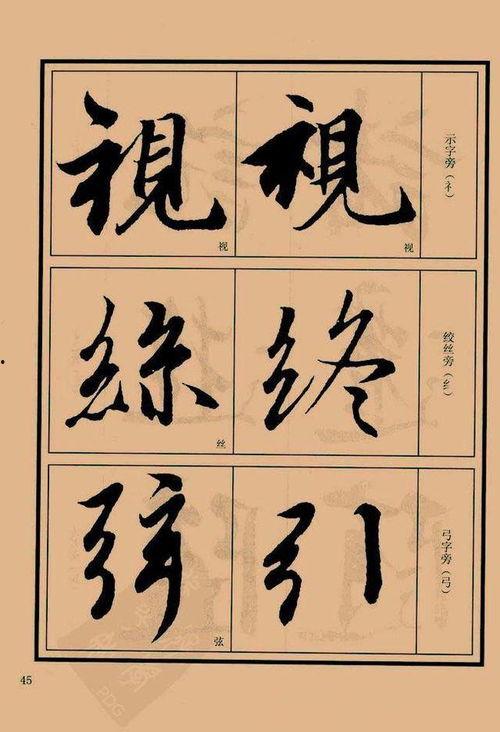 示字旁（礻）
視
视
視
视
绞丝旁（纟）
终
絲
丝
弓字旁（弓）
引
弦
弦
45
PDG